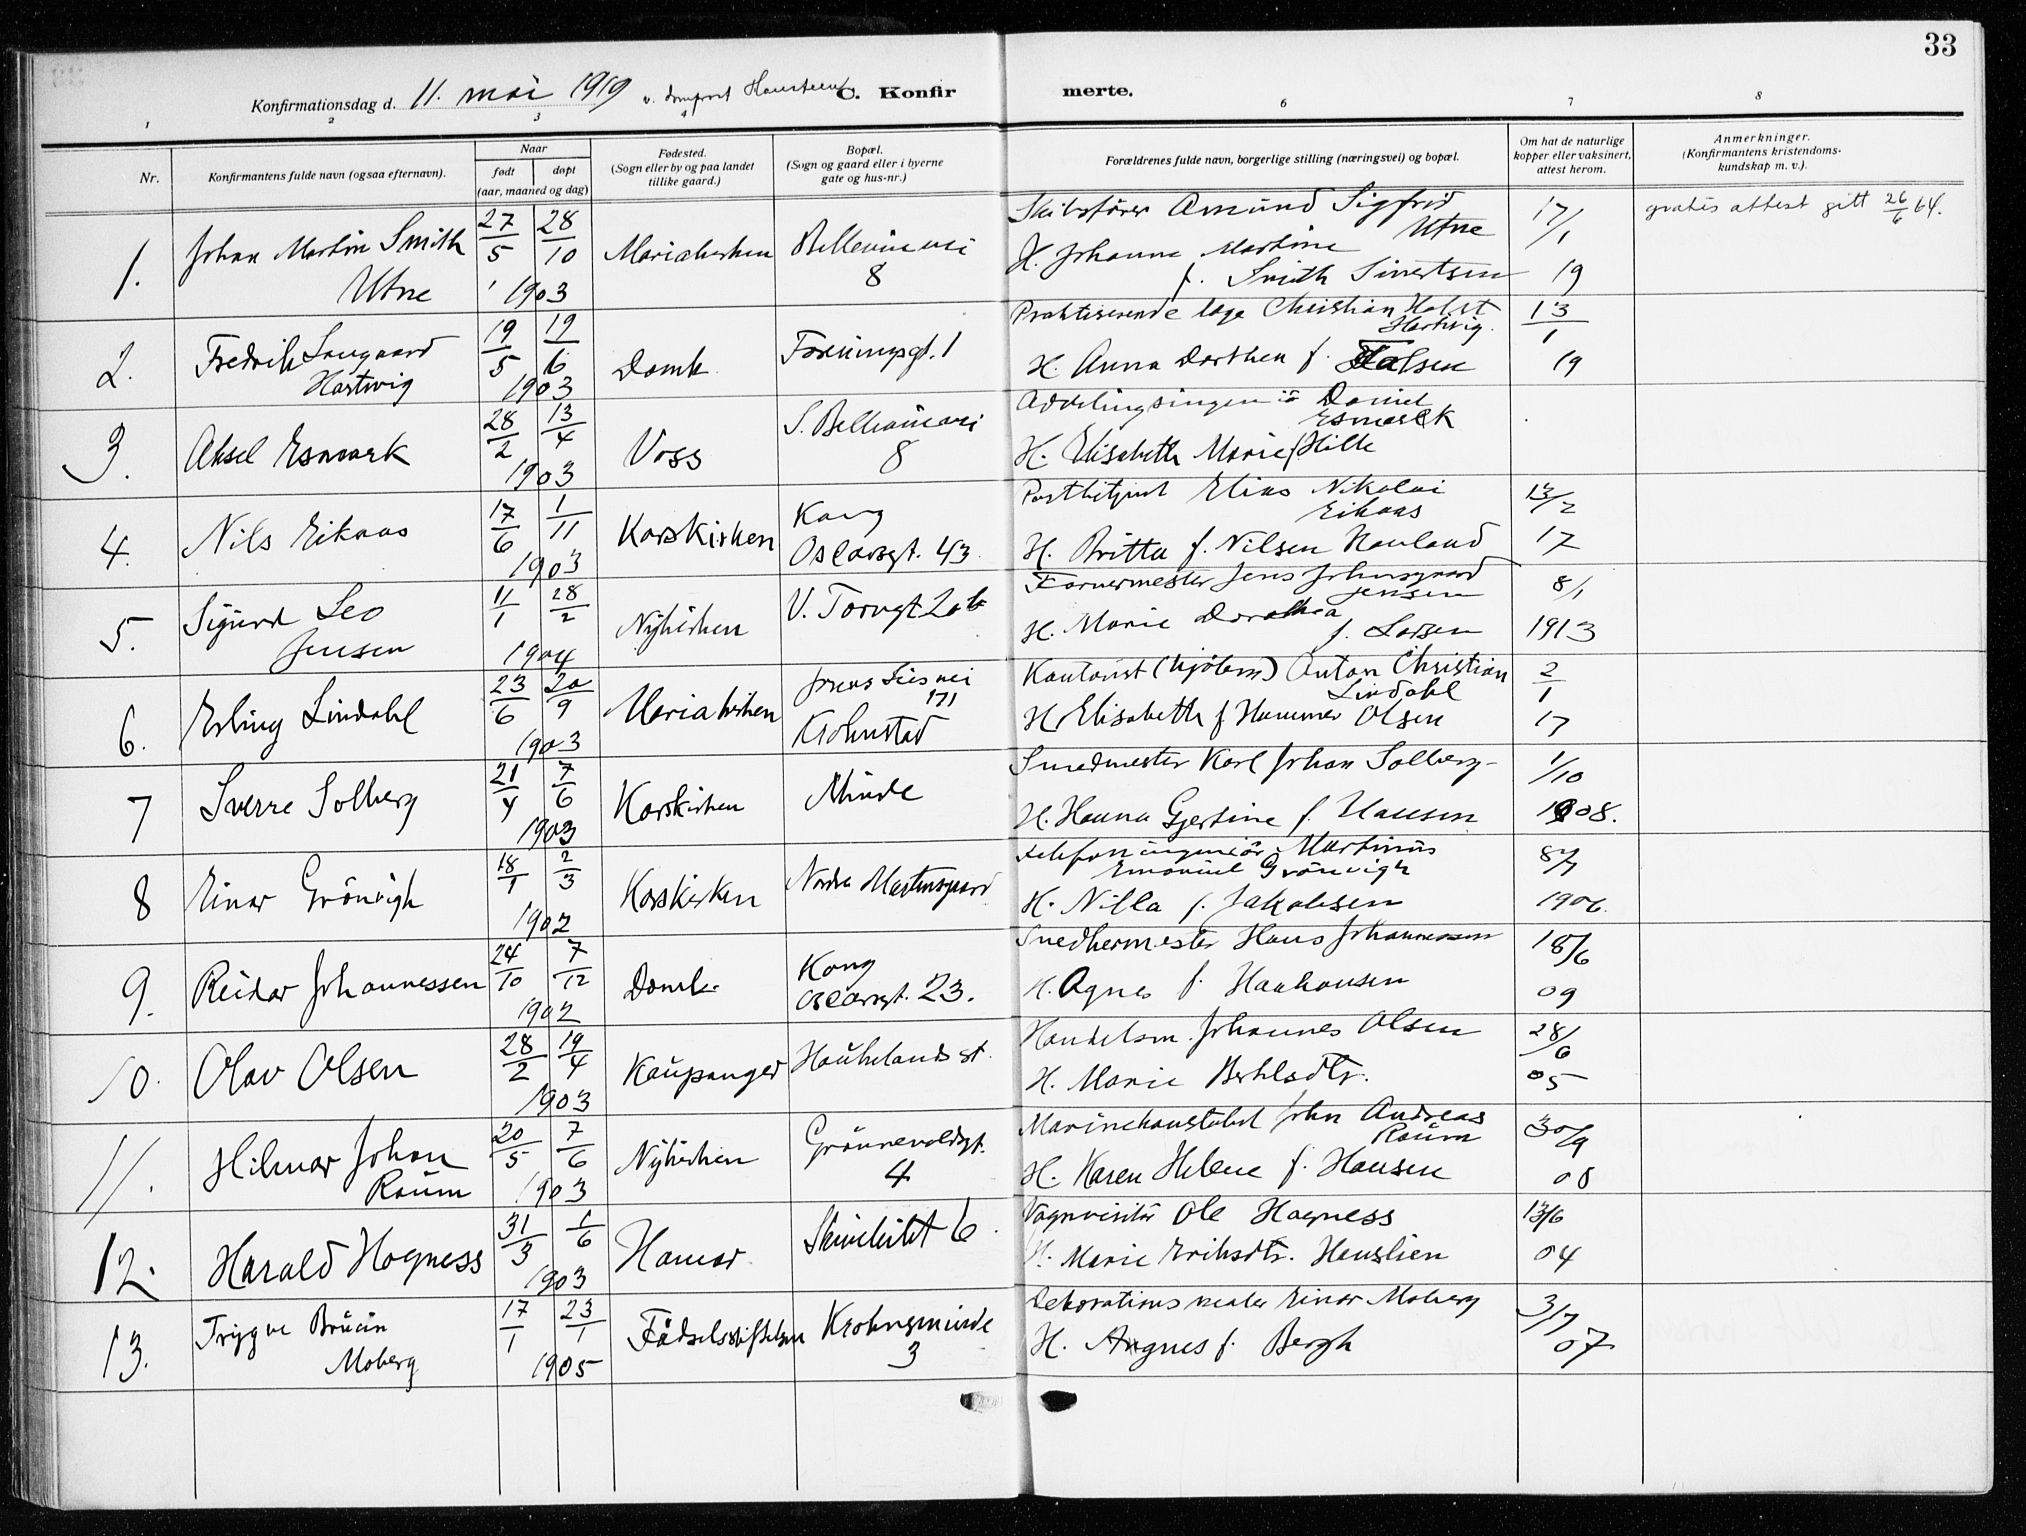 33
Konfirmationsdag d. 11. mai 1919 v. domprost C. Konfir merte.
1 2 3 4 6 7 8
Nr.
Konfirmantens fulde navn (ogsaa efternavn).
Naar
født døpt
(aar, maaned og dag)
Fødested.
(Sogn eller by og paa landet
tillike gaard.)
Bopæl.
(Sogn og gaard eller i byerne
gate og hus-nr.)
Forældrenes fulde navn, borgerlige stilling (næringsvei) og bopæl.
Om hat de naturlige
kopper eller vaksinert,
attest herom.
Anmerkninger.
(Konfirmantens kristendoms-
kundskap m. v.).
1. Johan Martin Smith 27/5 28/10 Mariakirken Bellevuevei Skibsfører Amund Sigfrid 17/1 gratis attest gitt 26/6 64.
Utne
H. Johanne Martine
Utne 1903 8 f. Smith Sivertsen 19
2. Fredrik Langaard 19/5 19/6 Domk. Foreningsgt. 1 Praktiserende læge Christian Holst 13/1
Hartvig.
Hartvig 1903 H. Anna Dorthea f. Falsen 19
3. Aksel Esmark 28/2 13/4 Voss S. Bellevuevei Avdelingsingeniør Daniel
Esmark
1903 8 H. Elisabeth Marie f. Hille
4. Nils Eikaas 17/6 1/11 Korskirken Kong Postbetjent Elias Nikolai 13/2
Eikaas
1903 Oscarsgt. 43. H. Britta f. Nilsen Hauland 17
5. Sigurd Leo 11/1 28/2 Nykirken V. Torvgt 20b Farvermester Jens Johnsgaard 8/1
Jensen
H. Marie Dorothea
Jensen 1904 f. Larsen 1913
6. Erling Lindahl 23/6 20/9 Mariakirken Jonas Lies vei Kontorist (hjælpem) Anton Christian 2/1
171 Lindahl
1903 Krohnstad H. Elisabeth f. Hammer Olsen 17
7 Sverre Solberg 21/4 7/6 Korskirken Minde Smedmester Karl Johan Solberg 1/10
1903 H. Hanna Gjertine f. Hansen 1908.
8 Einar Grönvigh 18/1 2/3 Korskirken Nordre Mestergaard Telefoningeniør Martinus 8/7
Emanuel Grönvigh
1902 H. Nilla f. Jakobsen 1906.
9. Reidar Johannessen 24/10 7/12 Domk. Kong Snedkermester Hans Johannessen 18/6
1902 Oscarsgt. 23. H. Agnes f. Haahansen 09
10. Olav Olsen 28/2 19/4 Kaupanger Haukelandsst. Handelsm. Johannes Olsen 28/6
1903 H. Marie Bertelsdtr. 05
11. Hilmar Johan 20/5 7/6 Nykirken Grönnevoldsgt. Marinekonstabel John Andreas 30/9
Raum
Raum 1903 4 H. Karen Helene f. Hansen 08
12. Harald Hogness 31/3 1/6 Hamar Skivebakken 6 Vognvisitør Ole Hogness 13/6
1903 H. Marie Eriksdtr. Hauglien 04
13. Trygve Bruun 17/1 23/1 Fødselsstiftelsen Krohnsminde Dekorationsmaler Einar Moberg 3/7
Moberg 1905 3 H. Agnes f. Bergh 07